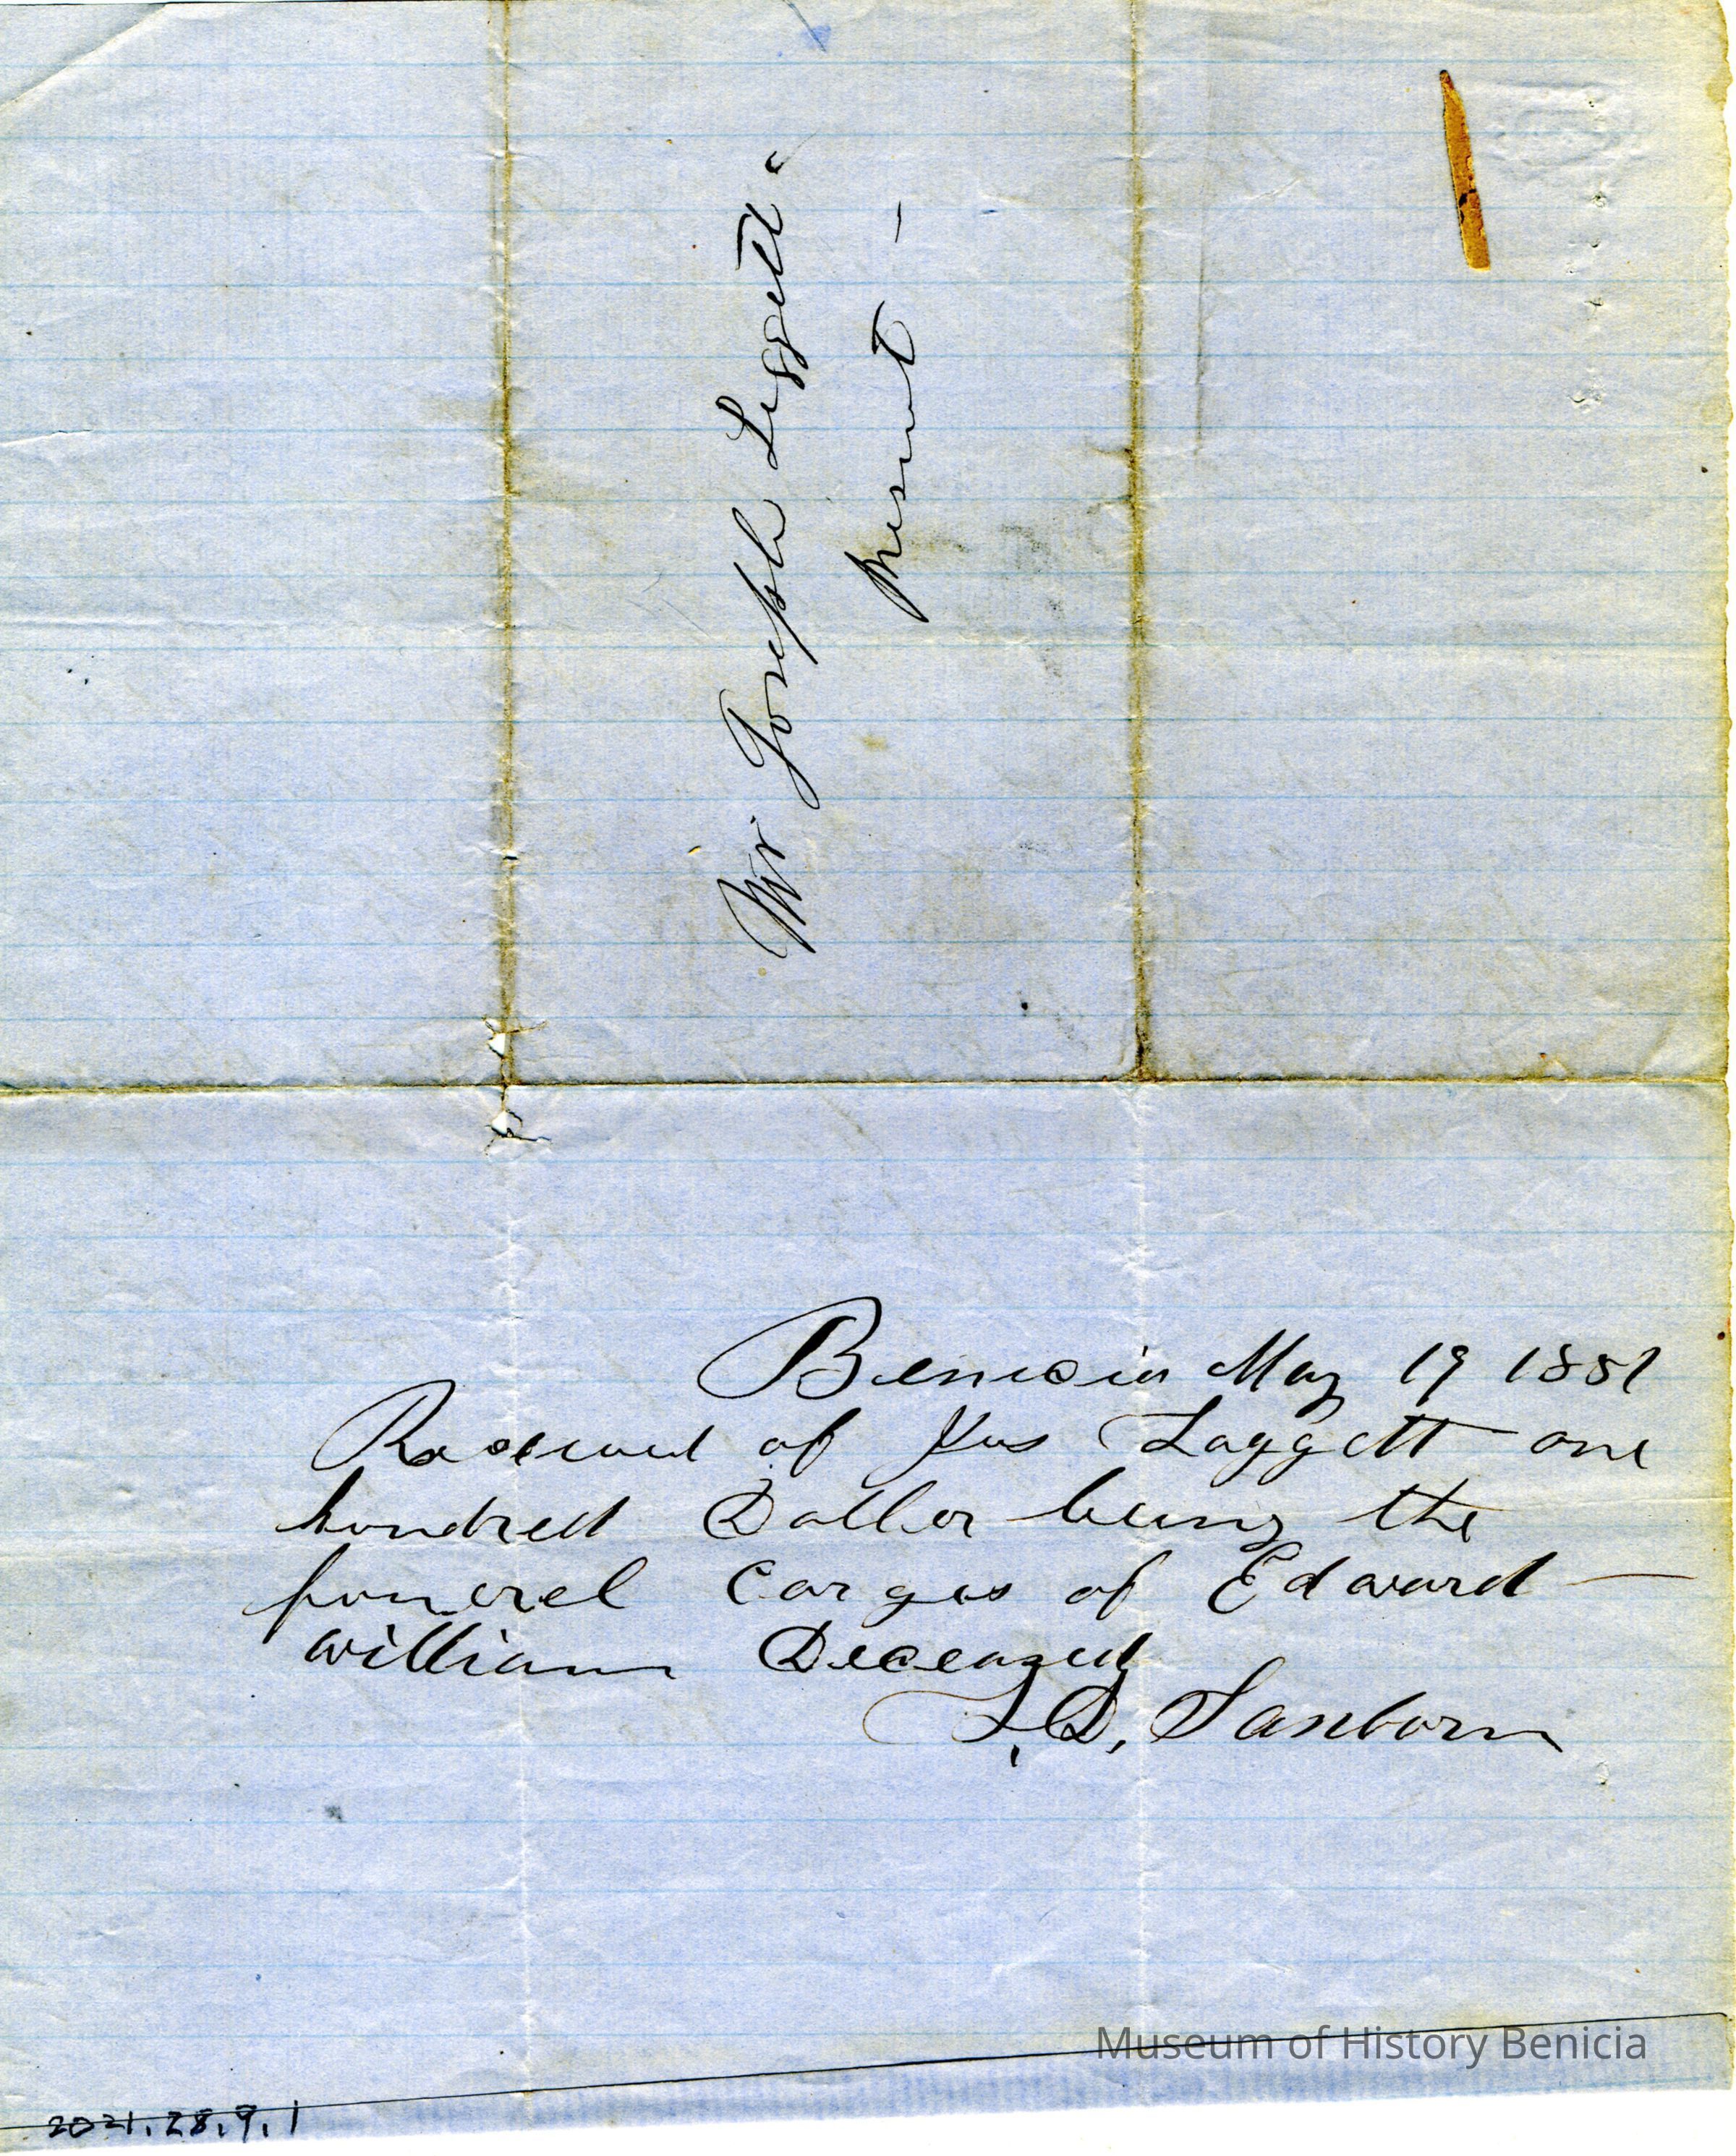 Mr Joseph Liggett
Present —
Benicia May 19 1881
Received of Jos Laggett one
hundred Doller being the
funerel Carges of Edward —
William Deceased
L. D. Sanborn
Museum of History Benicia
2021.28.9.1